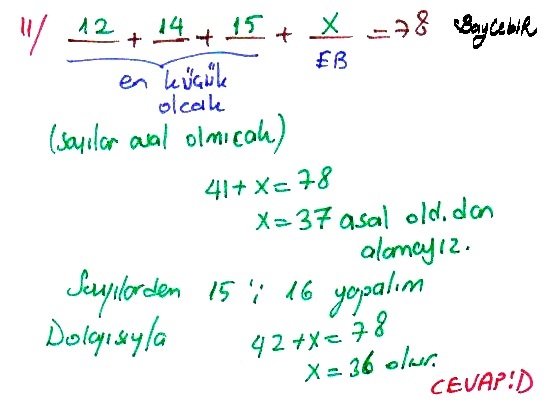 11/ 12 + 14 + 15 + X = 78 Baycebir
EB
en küçük
olcak
(sayılar asal olmıcak)
41 + x = 78
x = 37 asal old.dan
alamayız.
Sayılardan 15'i 16 yapalım
Dolayısıyla 42 + x = 78
x = 36 olur.
CEVAP:D